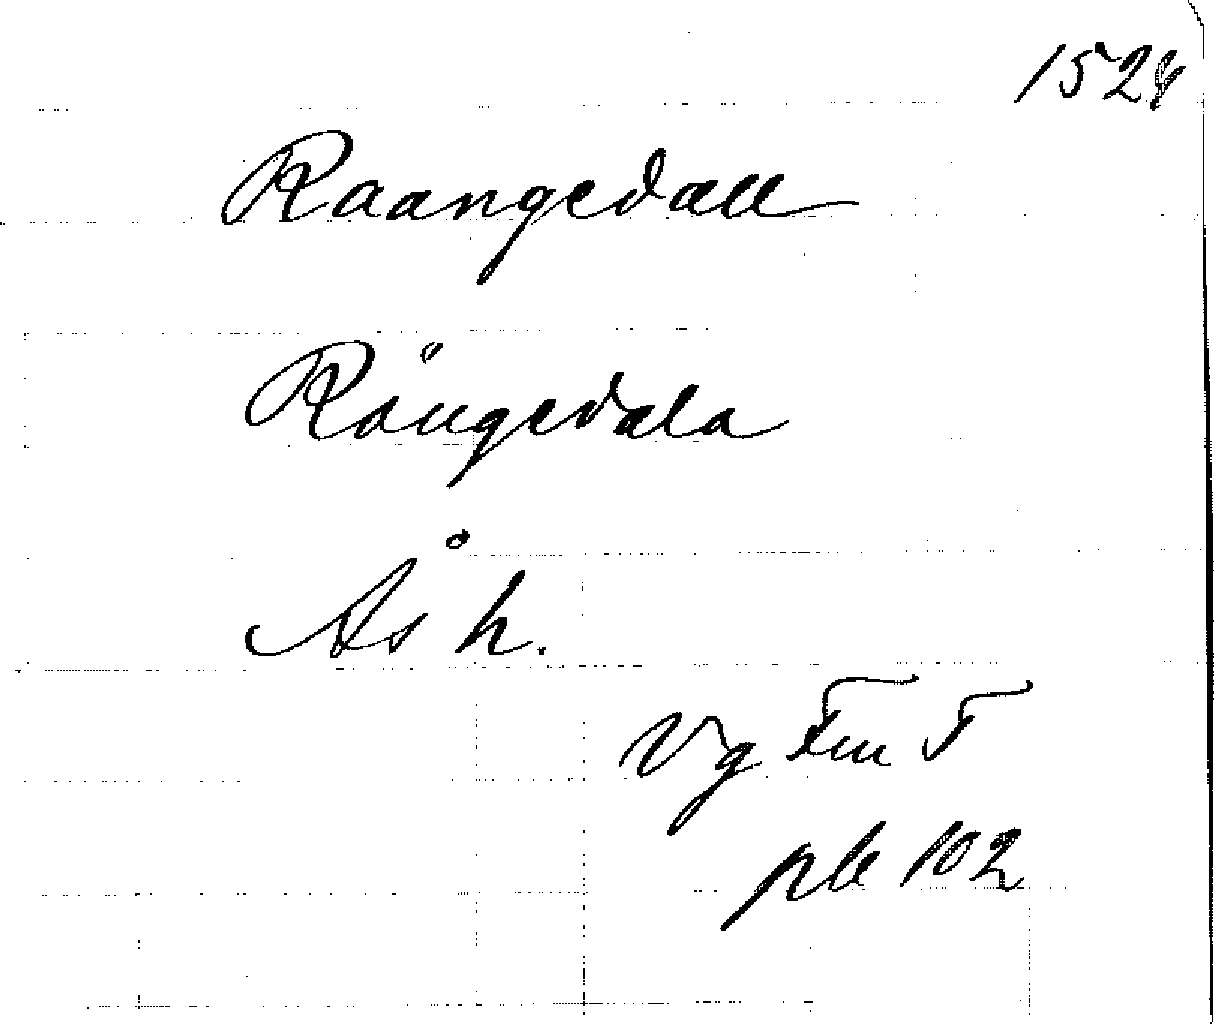 1528
Raangedall
Rångedala
Ås h.
Vg Fm F